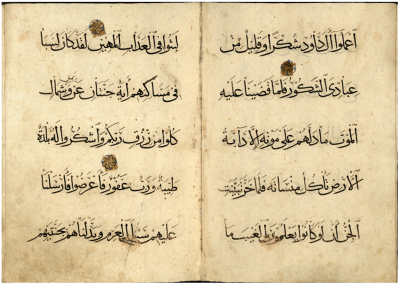 اعملوا آل داود شكرا وقليل من
عبادي الشكور فلما قضينا عليه
الموت ما دلهم على موته إلا دابة
الأرض تأكل منساته فلما خر تبينت
الجن أن لو كانوا يعلمون الغيب ما
لبثوا في العذاب المهين لقد كان لسبا
في مساكنهم آية جنتان عن يمين وشمال
كلوا من رزق ربكم واشكروا له بلدة
طيبة ورب غفور فأعرضوا فأرسلنا
عليهم سيل العرم وبدلناهم بجنتيهم